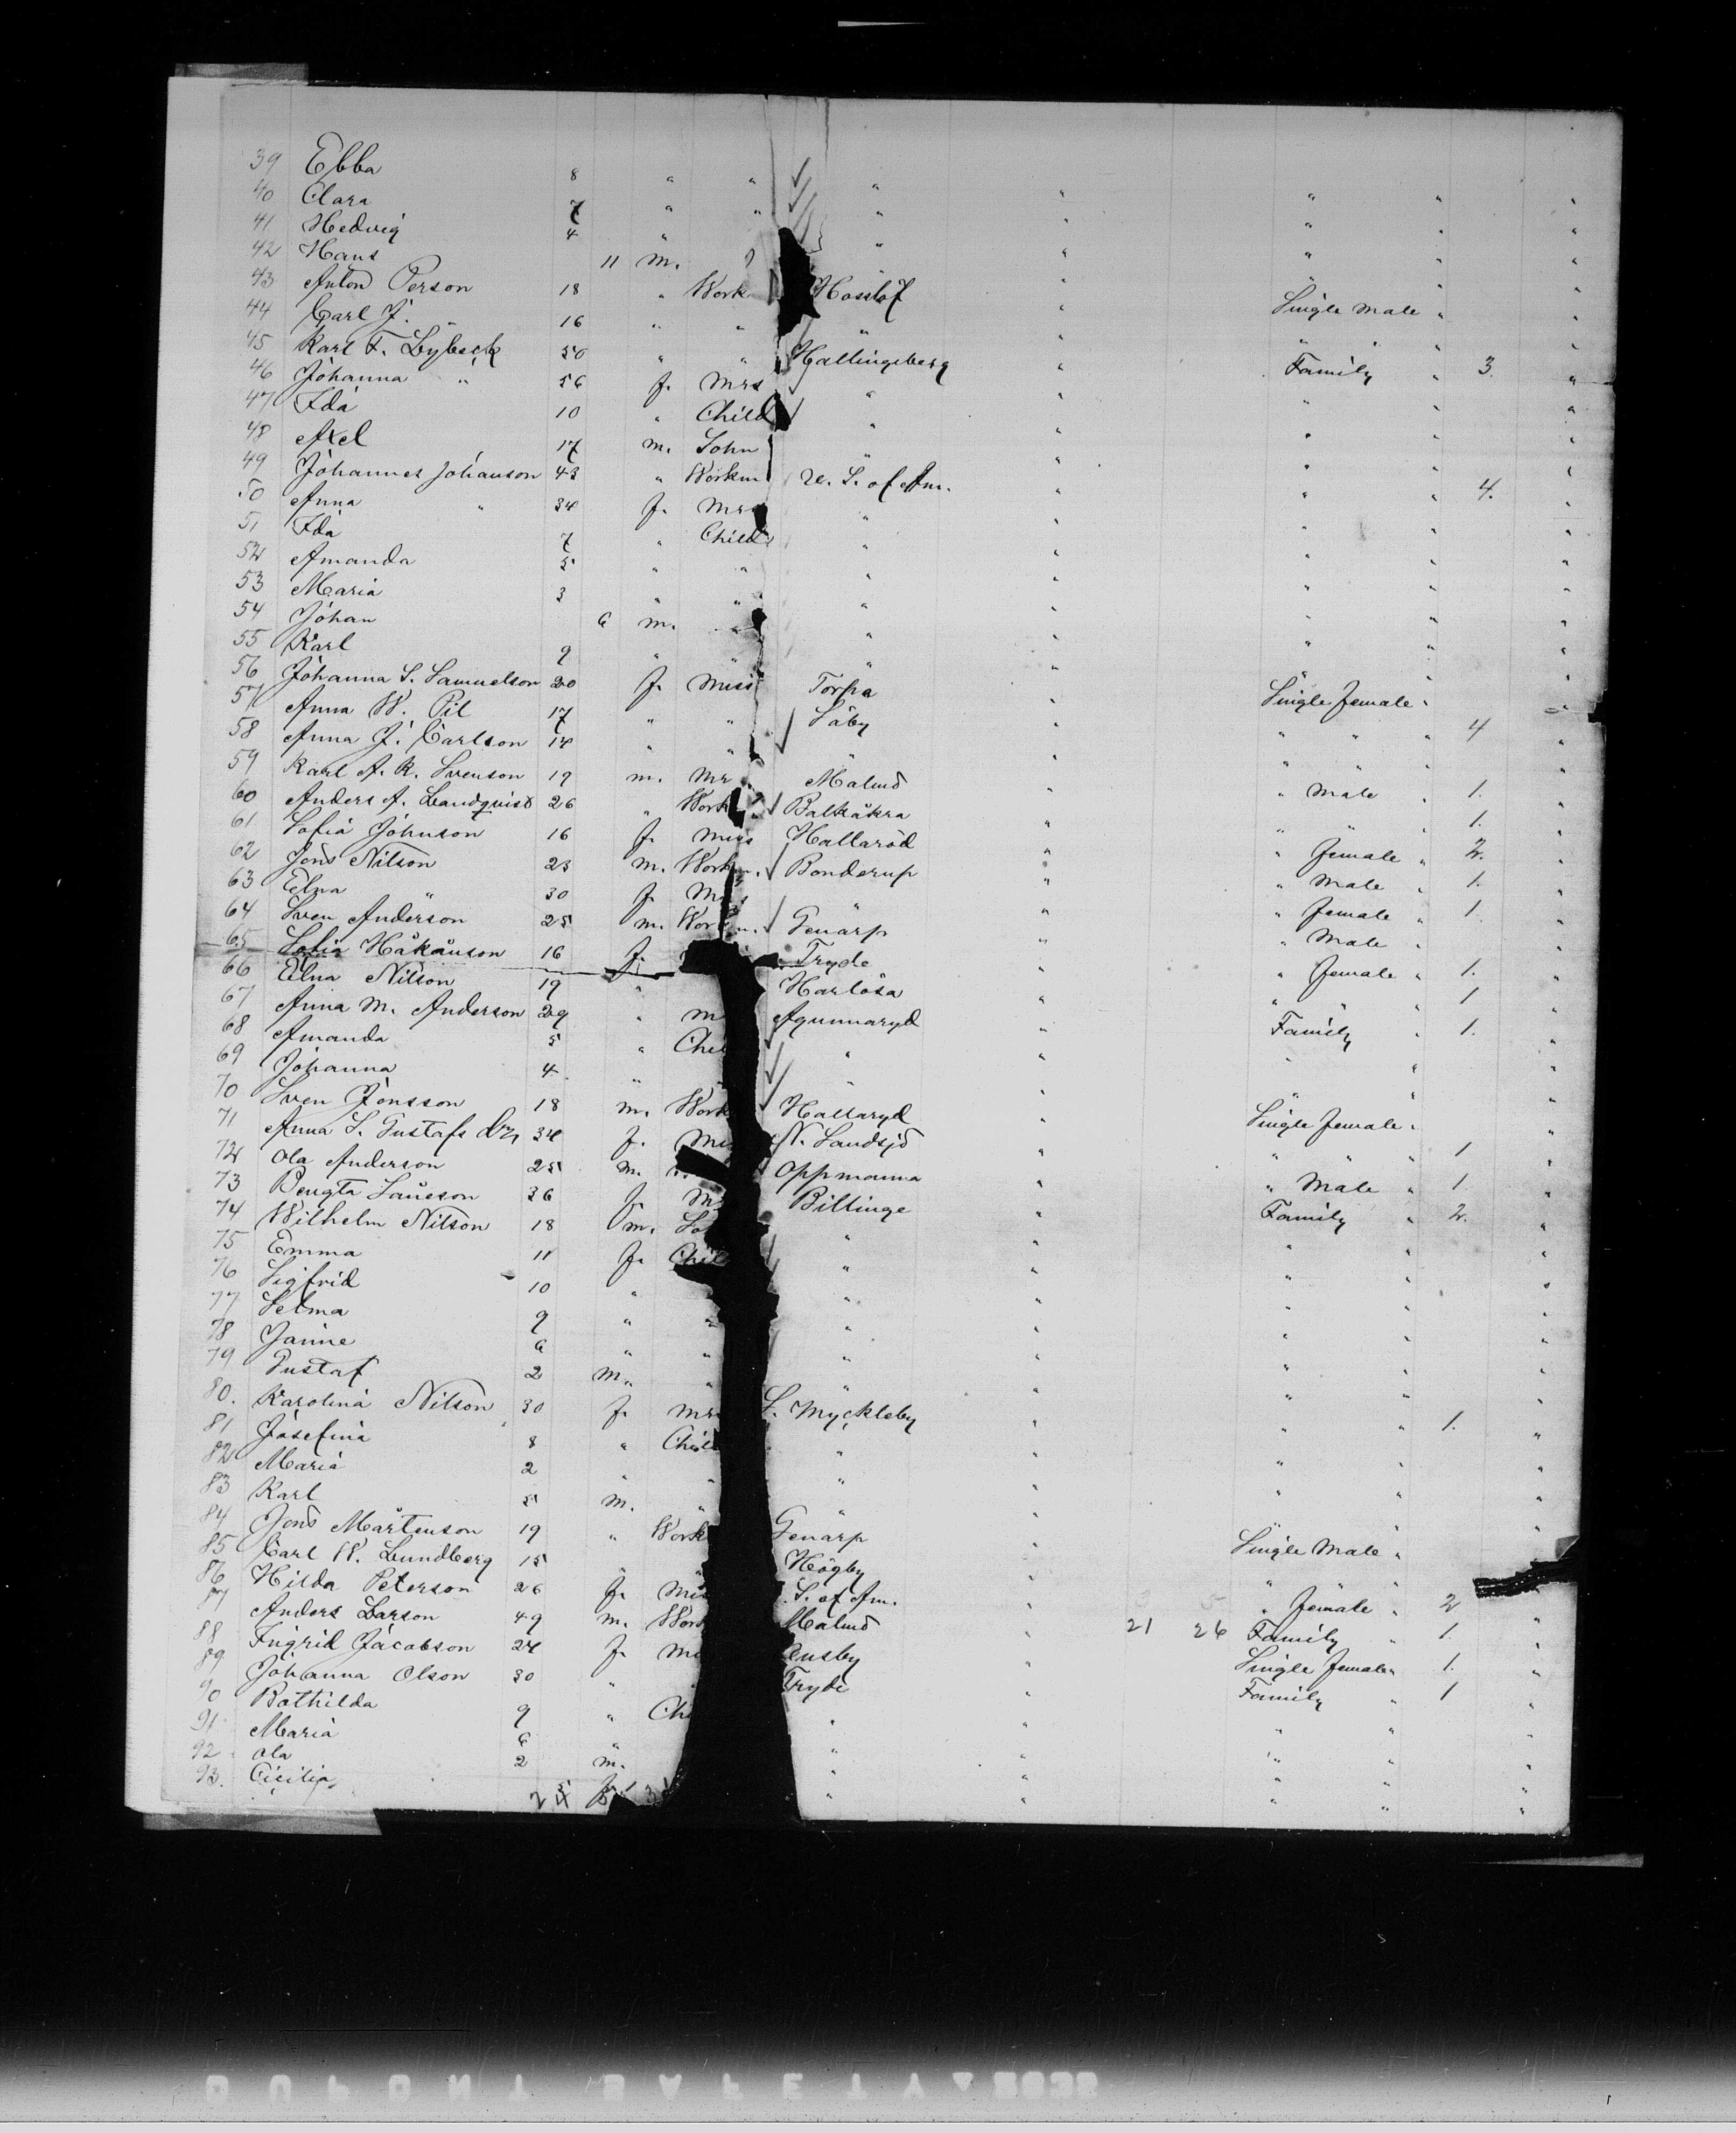 39 Ebba 8 " " " " " " "
40 Clara 7 " " " " " " "
41 Hedvig 4 " " " " " "
42 Hans 11 m. " " " "
43 Anton Person 18 " Work Hasslöf " Single male " "
44 Carl J. " 16 " " " " " " "
45 Karl F. Lybeck 50 " " Hallingeberg " Family " 3. "
46 Johanna " 56 f. Mrs " " " " "
47 Ida 10 " Child " " " " "
48 Axel 17 m. Sohn " " " " "
49 Johannes Johanson 43 " Workm U. S. of Am. " " " 4. "
50 Anna " 34 f. Mrs " " " " "
51 Ida 7 " Child " " " " "
52 Amanda 5 " " " " " " "
53 Maria 3 " " " " " " "
54 Johan 6 m. " " " " " "
55 Karl 9 " " " " " " "
56 Johanna S. Samuelson 20 f. Miss Torpa " Single female " "
57 Anna W. Pil 17 " " Säby " " " " 4 "
58 Anna J. Carlson 14 " " " " " " "
59 Karl A. R. Svenson 19 m. Mr Malmö " " Male " 1. "
60 Anders A. Landquist 26 " Work Balkåkra " " " " 1. "
61 Sofia Johnson 16 f. Miss Hallaröd " " female " 2. "
62 Jöns Nilson 23 m. Workm. Bonderup " " Male " 1. "
63 Elna " 30 f. M " " " female " 1. "
64 Sven Anderson 25 m. Workm. Genarp " " Male " "
65 Sofia Håkanson 16 f. Tryde " " female " 1. "
66 Elna Nilson 19 " Harlösa " " " " 1 "
67 Anna M. Anderson 29 " M Agunnaryd " Family " 1. "
68 Amanda 5 " Chil " " " " "
69 Johanna 4 " " " " " " "
70 Sven Jönsson 18 m. Work Hallaryd " Single female " "
71 Anna S. Gustafs 34 f. Mi N. Sandsjö " " " " 1 "
72 Ola Anderson 25 m. Oppmanna " " Male " 1. "
73 Bengta 36 f. M Billinge " Family " 2. "
74 Wilhelm Nilson 18 m. So " " " " "
75 Emma 11 f. Chil " " " " "
76 Sigfrid 10 " " " " " "
77 Selma 9 " " " " " " "
78 Janne 6 " " " " " " "
79 Gustaf 2 m. " " " " " "
80. Karolina Nilson 30 f. Mr S. Myckleby " " " 1. "
81 Josefina 8 " Chil " " " " "
82 Maria 2 " " " " " " "
83 Karl 5 m. " " " " " "
84 Jöns Mårtenson 19 " Work Genarp " Single Male " "
85 Carl W. Lundberg 15 " " Högby " " " " "
86 Hilda Peterson 26 f. Mi S. of Am. " " female " 2 "
87 Anders Larson 49 m. Work Malmö " 21 26 Family " 1. "
88 Ingrid Jacobson 24 f. M ensby " Single female " 1. "
89 Johanna Olson 30 " Tryde " Family " 1 "
90 Bothilda 9 " Ch " " " " "
91 Maria 6 " " " " "
92 Ola 2 m. " " " " "
93. Cicilia f. " " " " "